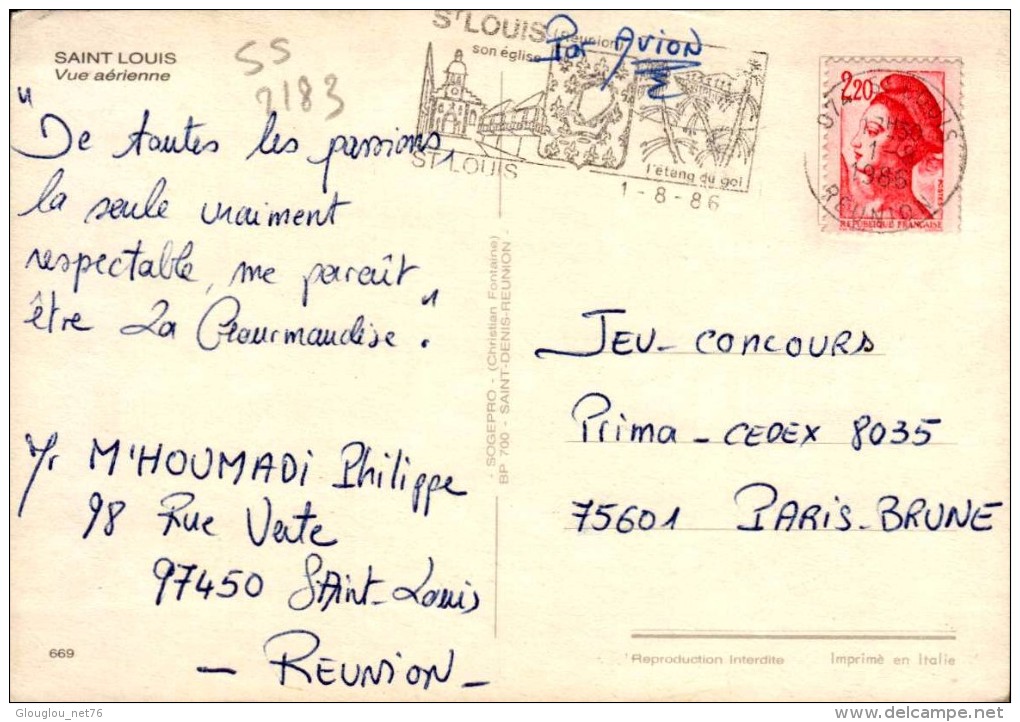 SAINT LOUIS
Vue aérienne
SS
2183
ST LOUIS (Réunion)
son église
l'étang du gol
ST LOUIS
1-8-86
Par Avion
2,20
ST LOUIS
1986
REUNION
REPUBLIQUE FRANÇAISE
"De toutes les passions,
la seule vraiment
respectable, me paraît
être La Gourmandise".
Mr M'HOUMADI Philippe
98 Rue Verte
97450 SAint-Louis
- REUNION -
- SOGEPRO - (Christian Fontaine)
BP 700 - SAINT-DENIS-REUNION -
JEU-CONCOURS
Prima - CEDEX 8035
75601 PARIS-BRUNE
669
Reproduction Interdite
Imprimè en Italie
Glouglou_net76